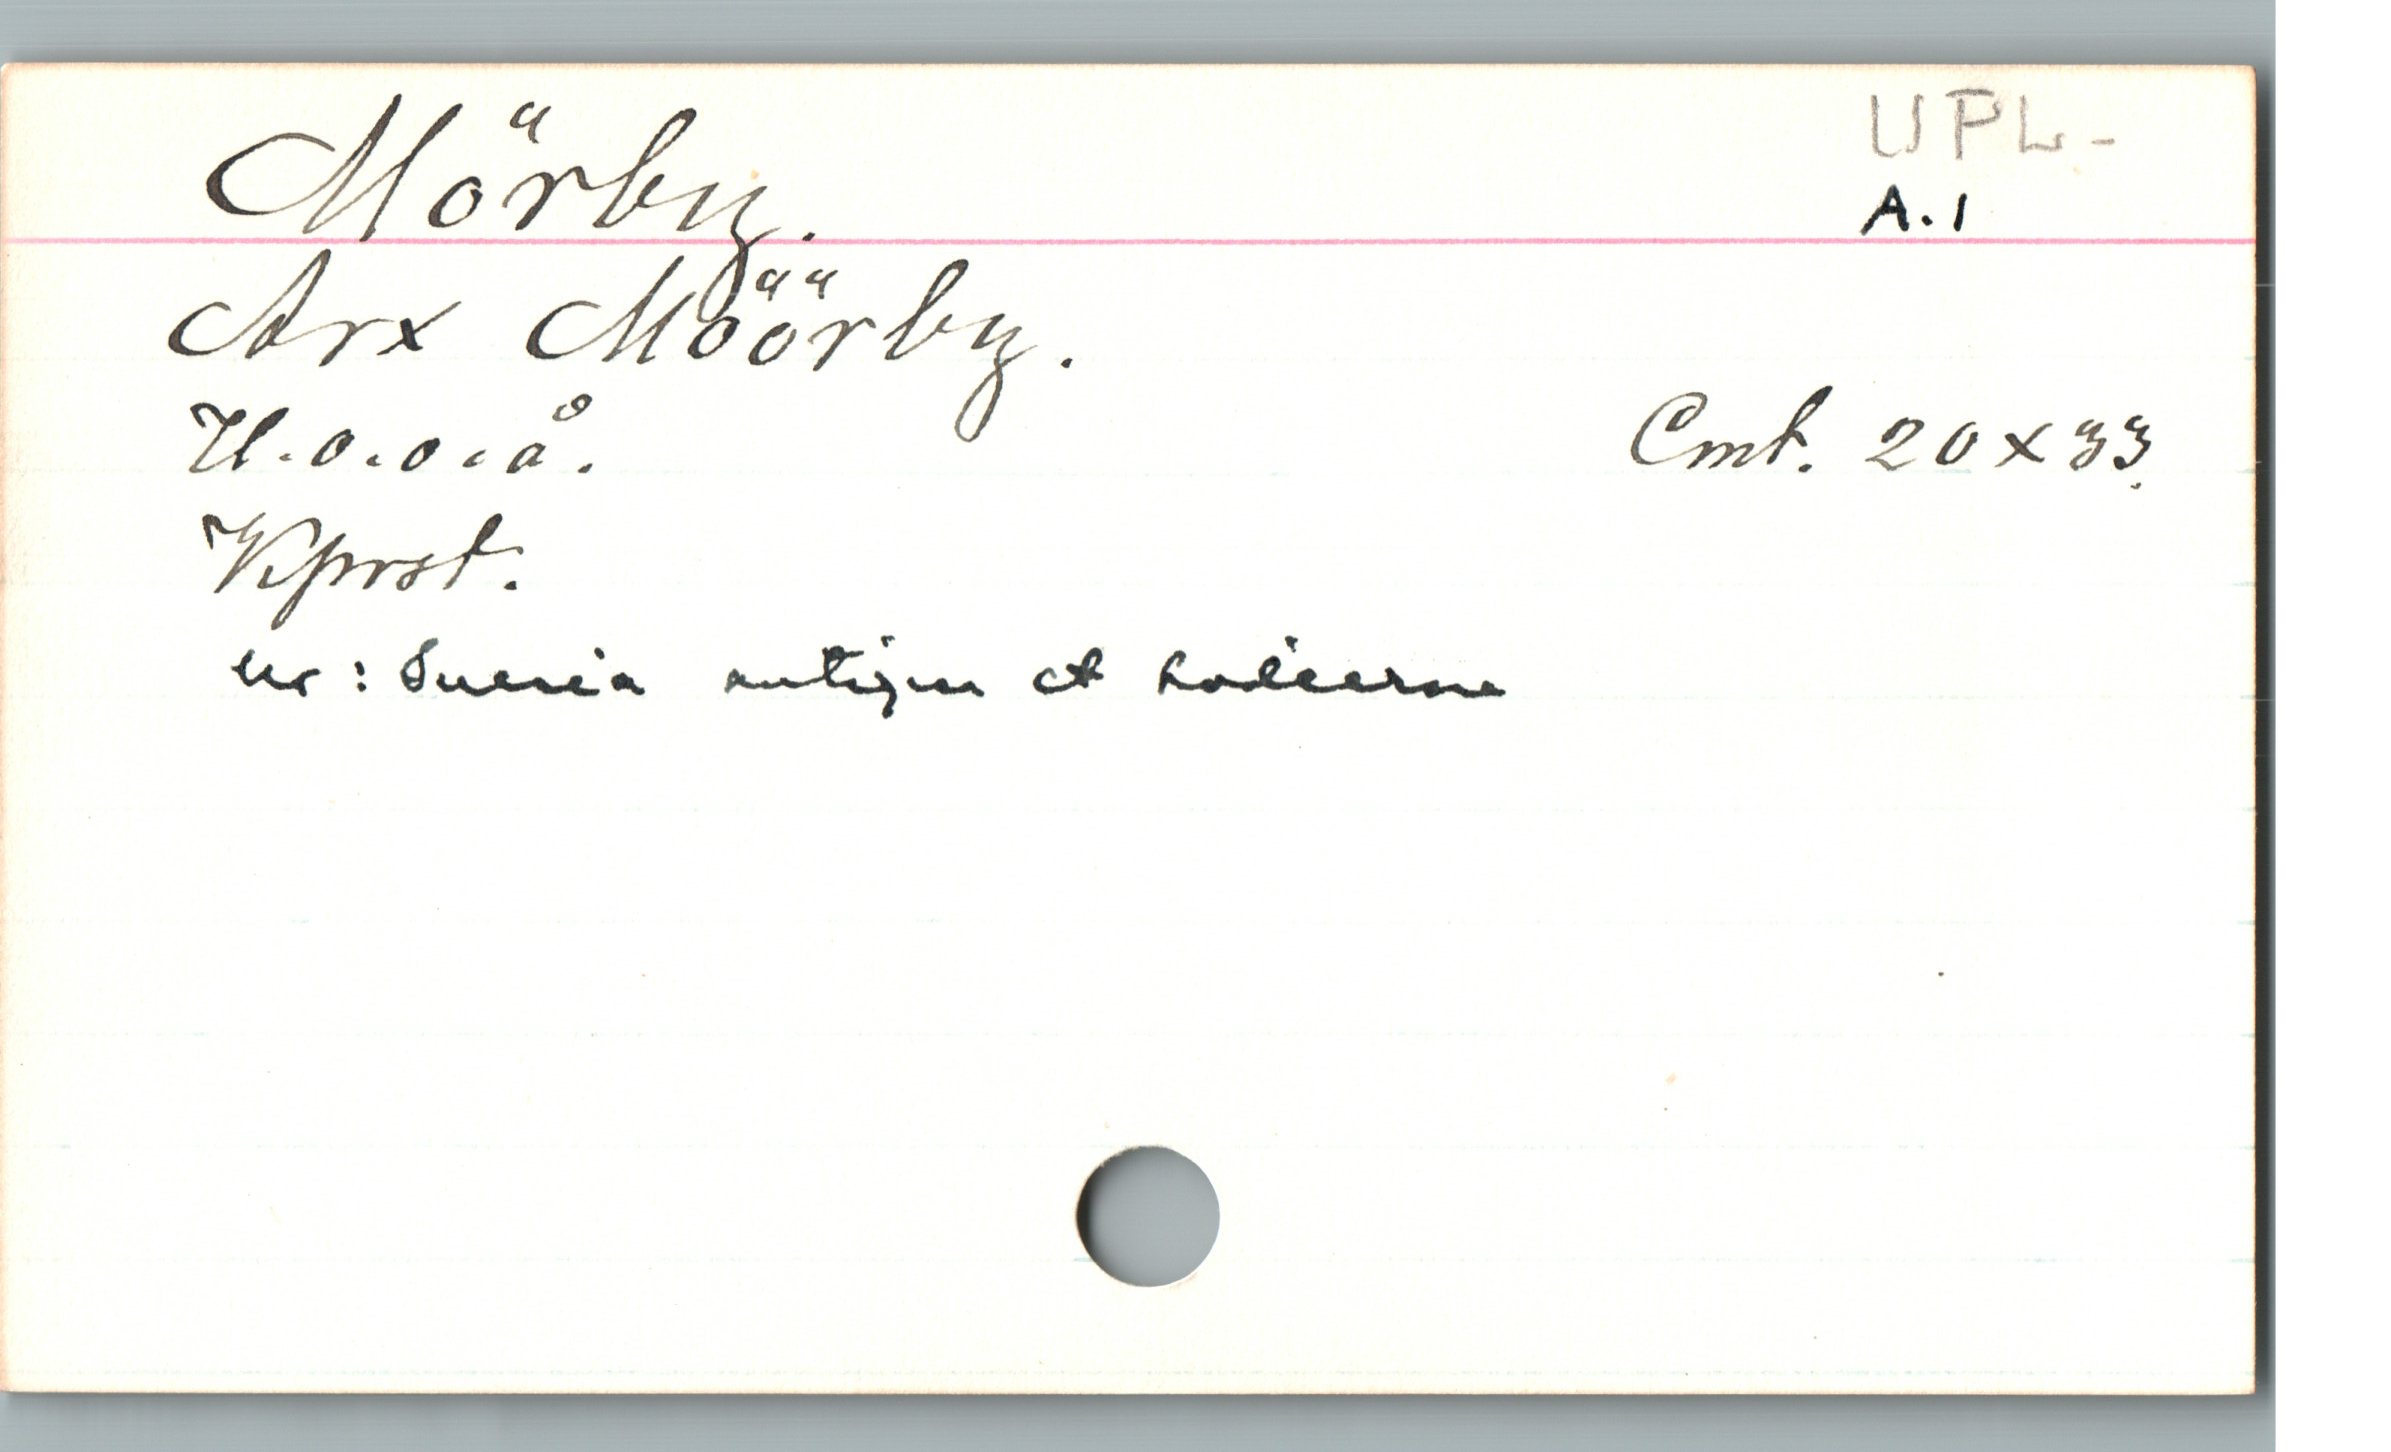 Mörby.
UPL-
A.1
Arx Möörby.
U.o.o.å.
Cmt. 20x33.
Kprst.
Ur: Suecia antiqua et hodierna